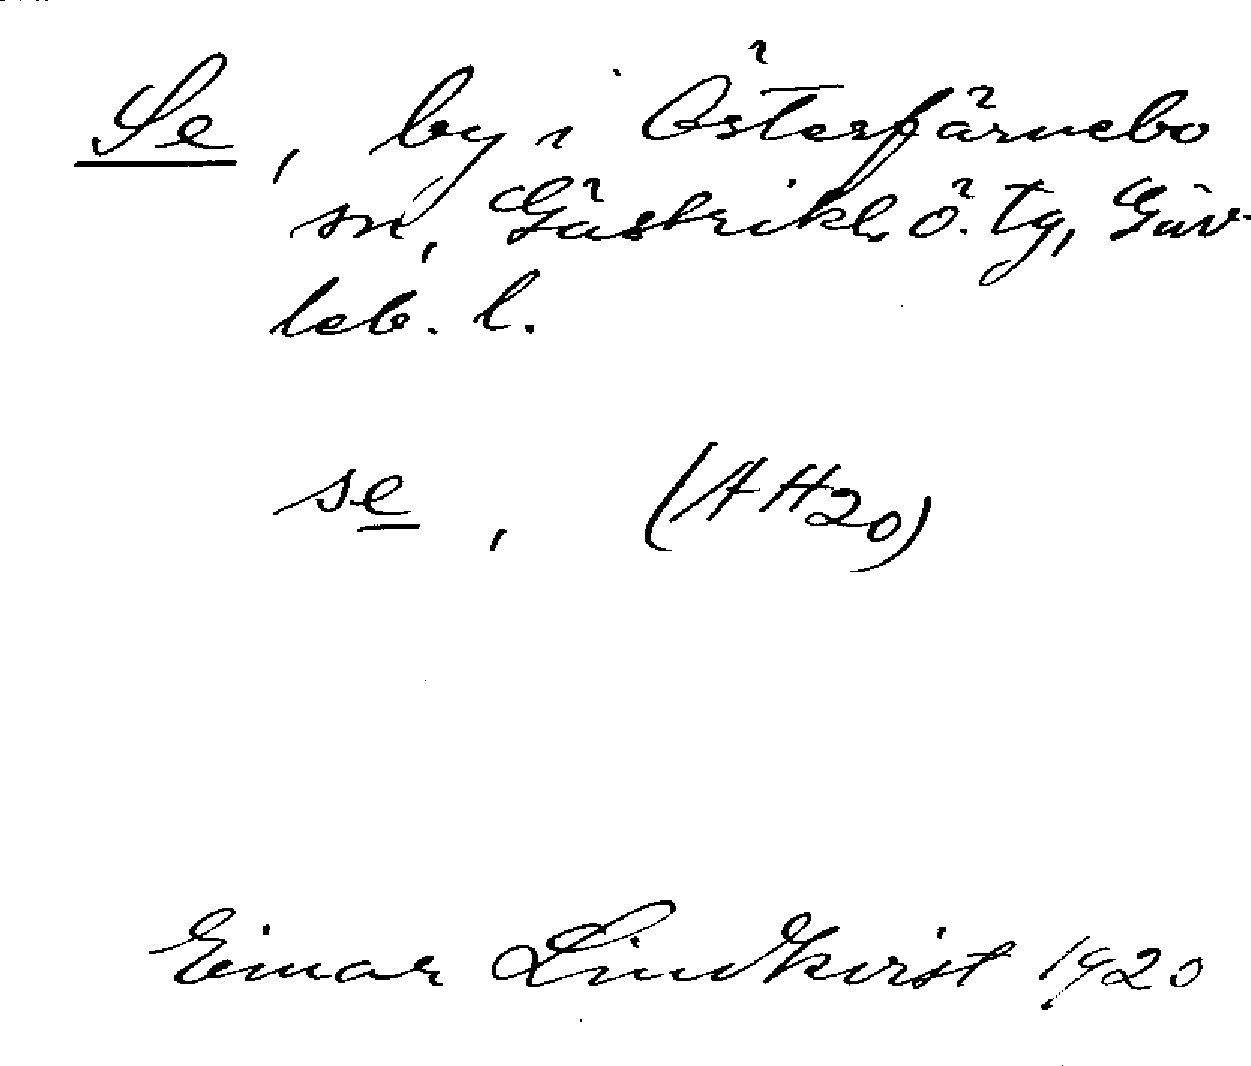 Se, by i Österfärnebo
sn, Gästrikl. ö. tg, Gäv-
leb. l.
se, (AH20)
Einar Lindkvist 1920